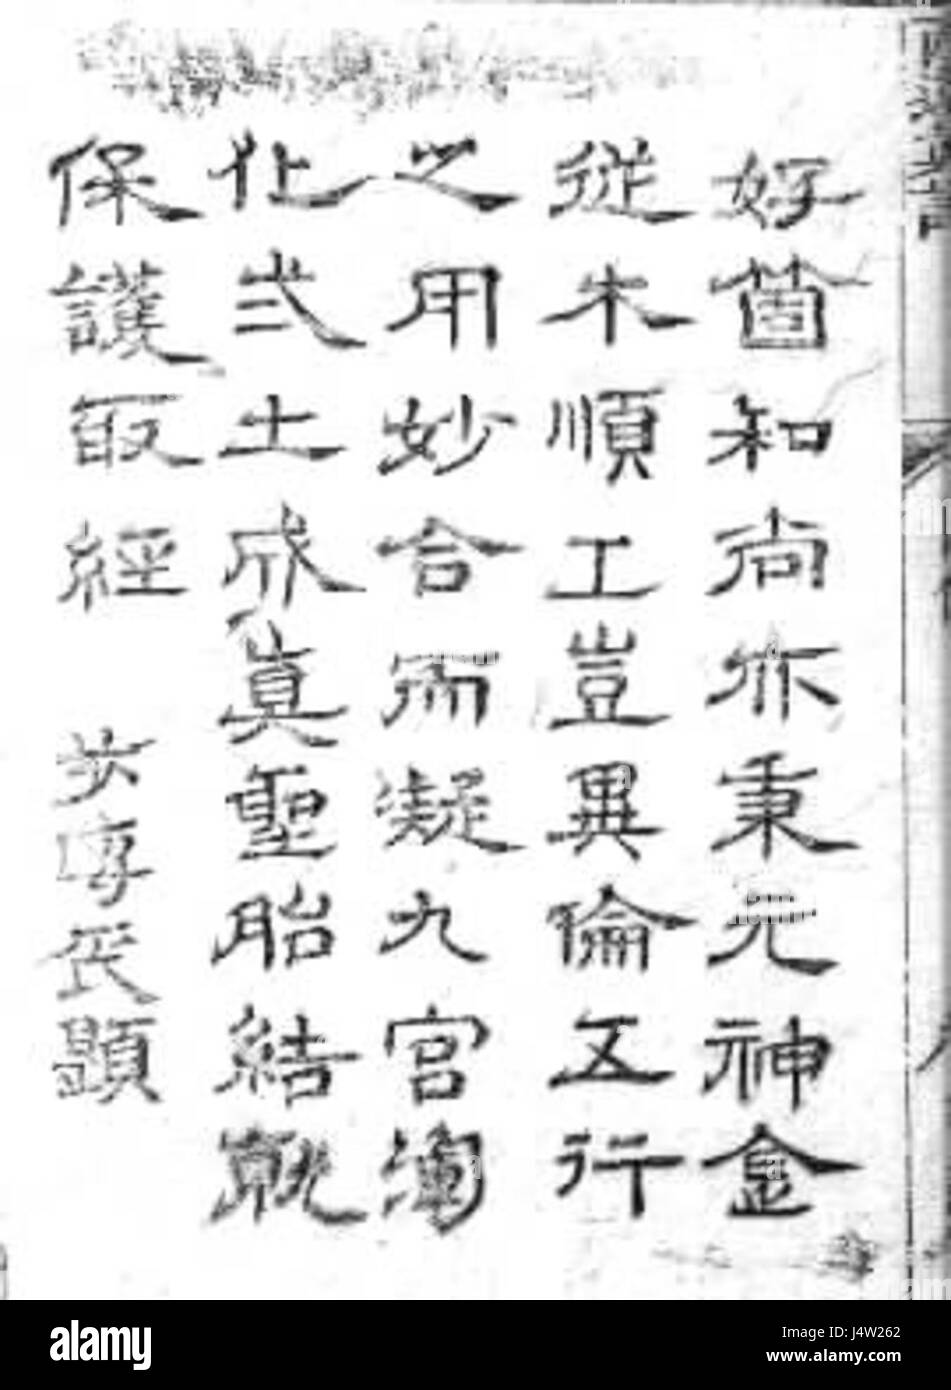 好箇和尚亦秉元神金
從木順工豈異倫五行
之用妙合而凝九宮
化弍土成真聖胎結就
保護取經
alamy
Image ID: J4W262
www.alamy.com